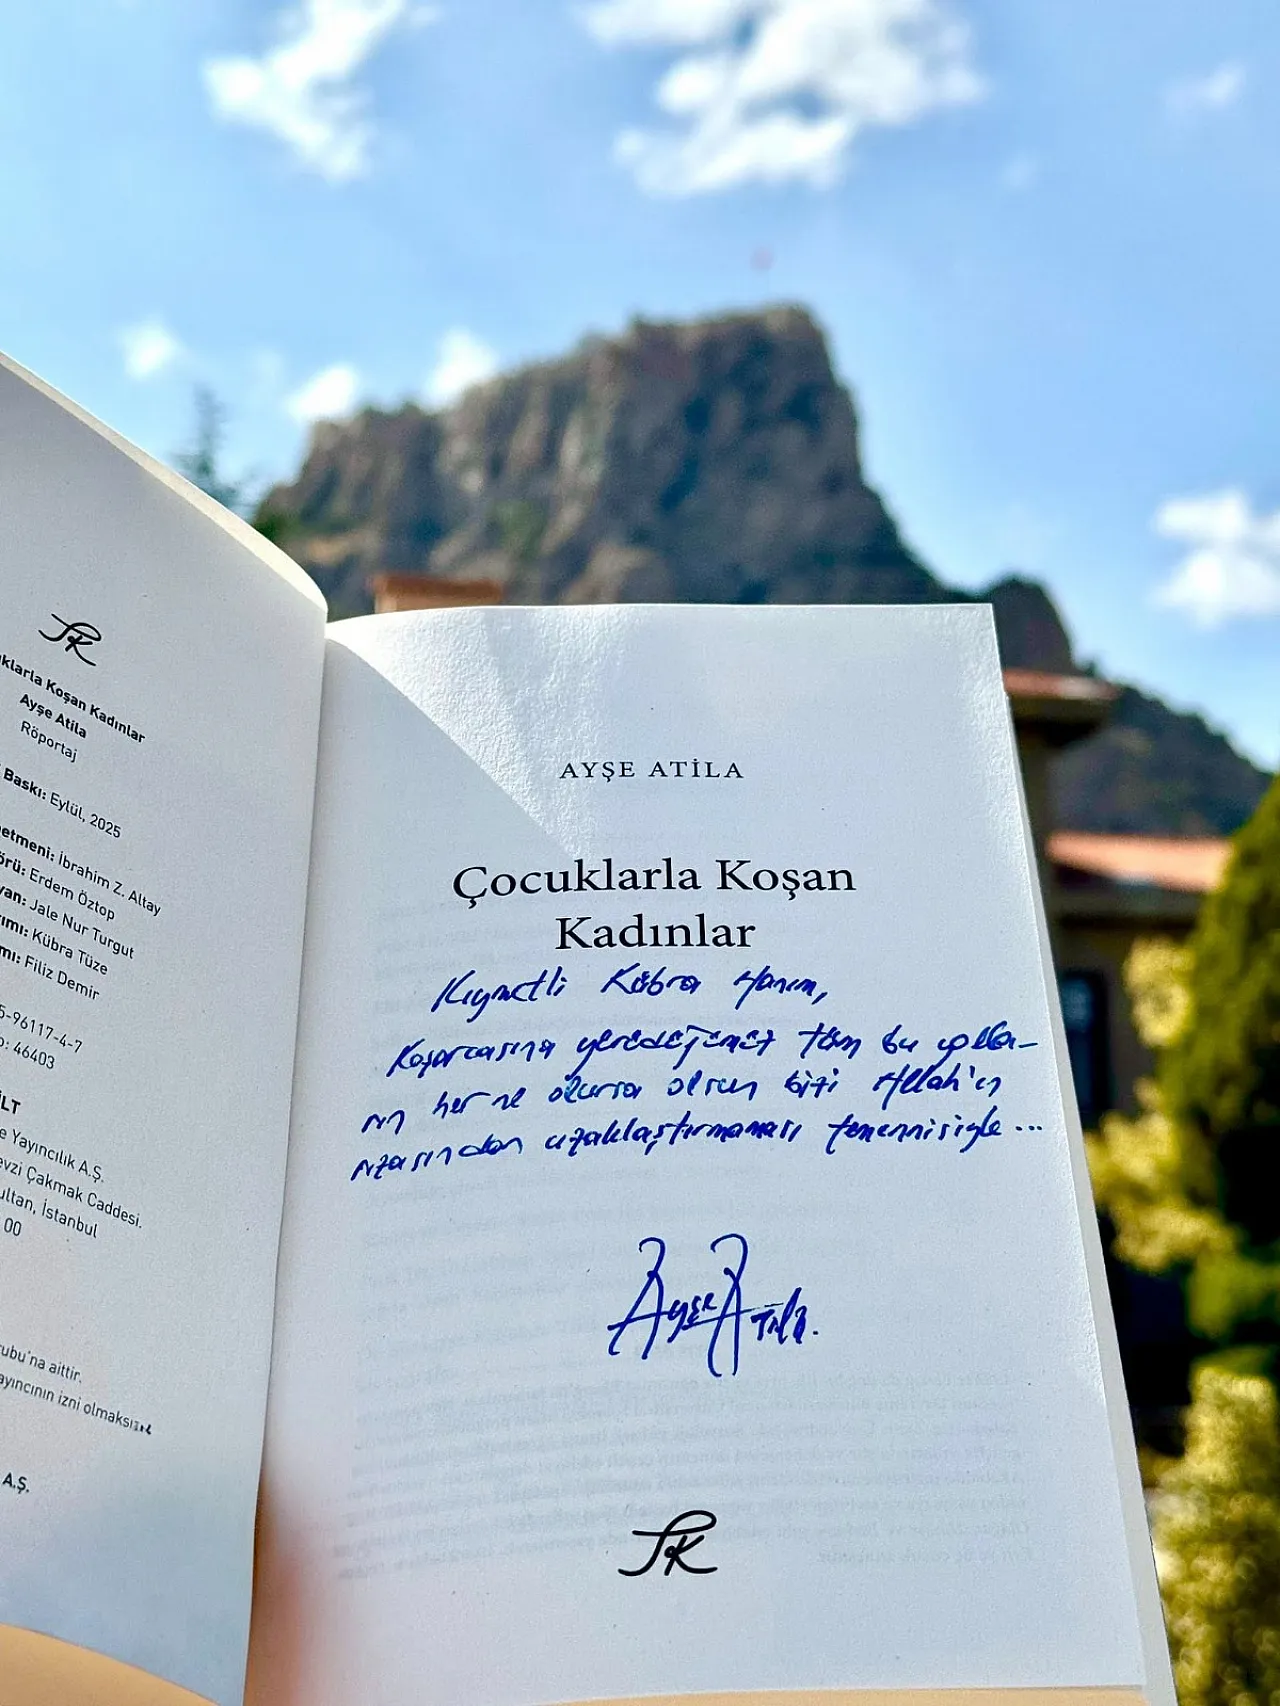 JK
klarla Koşan Kadınlar
Ayşe Atila
Röportaj
Baskı: Eylül, 2025
etmeni: İbrahim Z. Altay
örü: Erdem Öztop
yan: Jale Nur Turgut
ımı: Kübra Tüze
mı: Filiz Demir
5-96117-4-7
o: 46403
İLT
e Yayıncılık A.Ş.
evzi Çakmak Caddesi.
ultan, İstanbul
00
ubu'na aittir.
ayıncının izni olmaksızı
A.Ş.
AYŞE ATİLA
Çocuklarla Koşan
Kadınlar
Kıymetli Kübra Hanım,
Koşarcasına yürüdüğümüz tüm bu yolla-
rın her ne olursa olsun bizi Allah'ın
rızasından uzaklaştırmaması temennisiyle...
Ayşe Atila.
JK